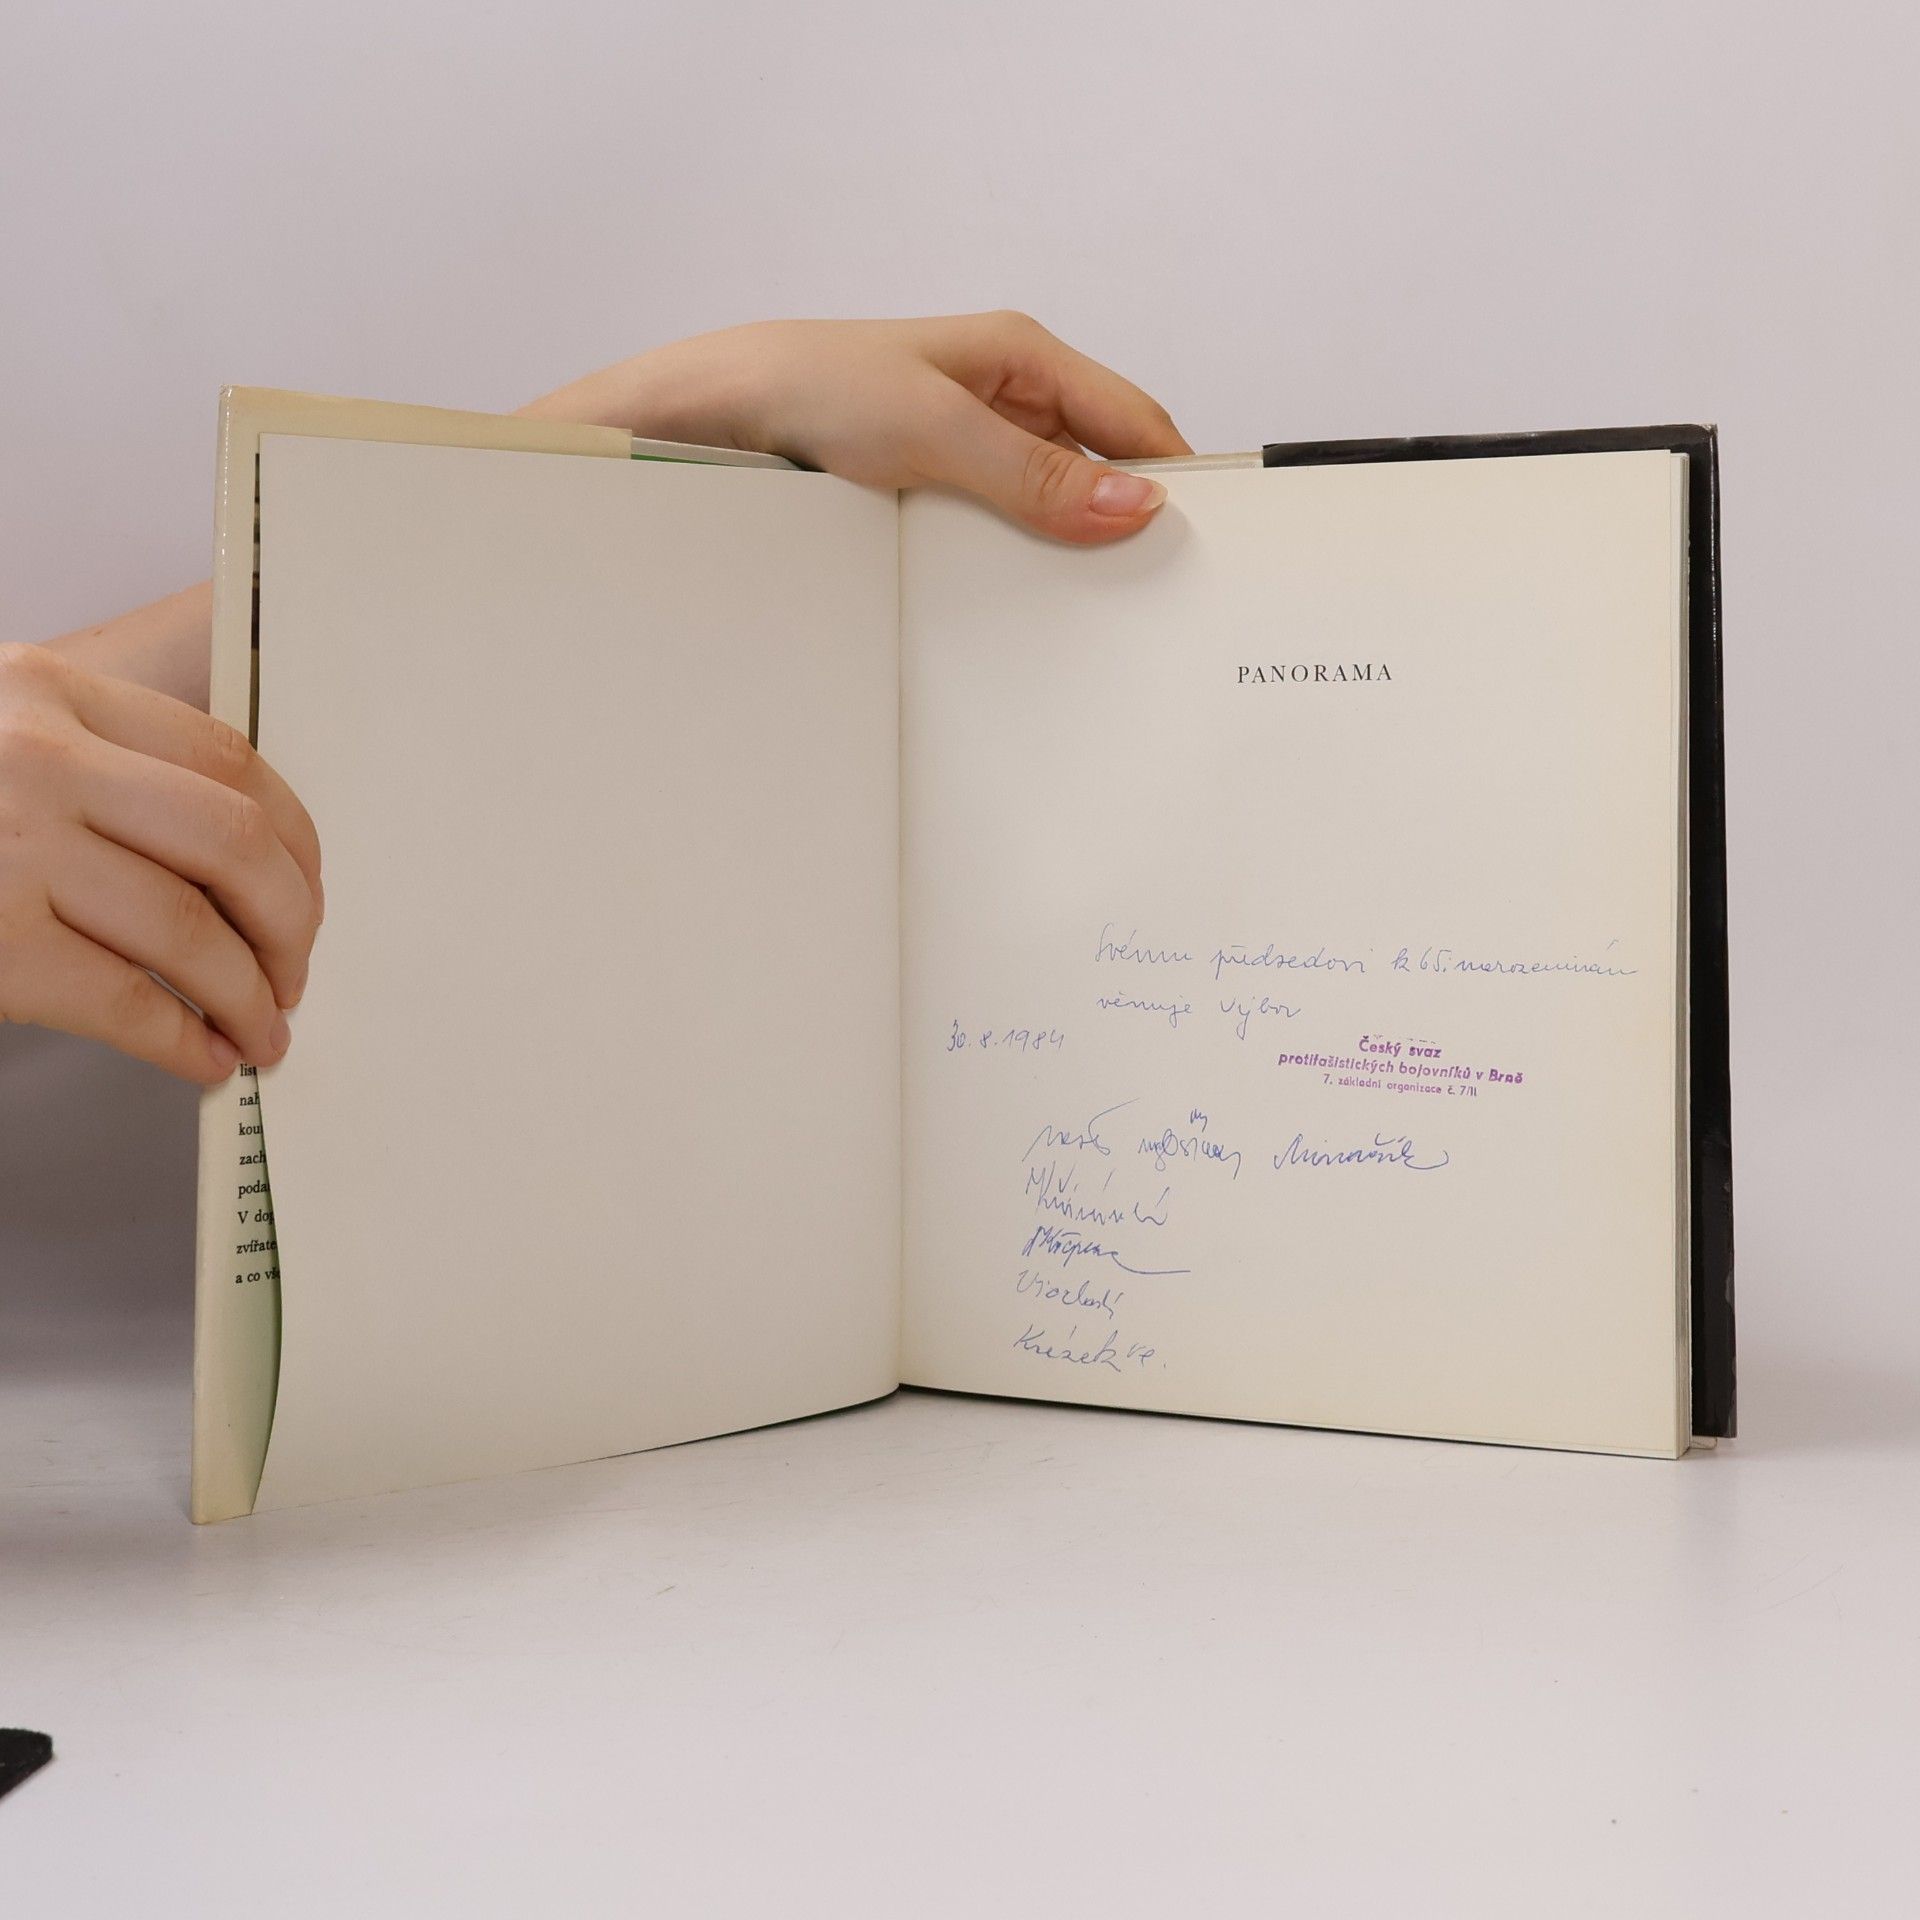 lis
nah
kou
zach
poda
V dop
zvířate
a co vše
PANORAMA
Svému předsedovi k 65. narozeninám
věnuje výbor
30.8.1984
Český svaz
protifašistických bojovníků v Brně
7. základní organizace č. 7/II
Křížek